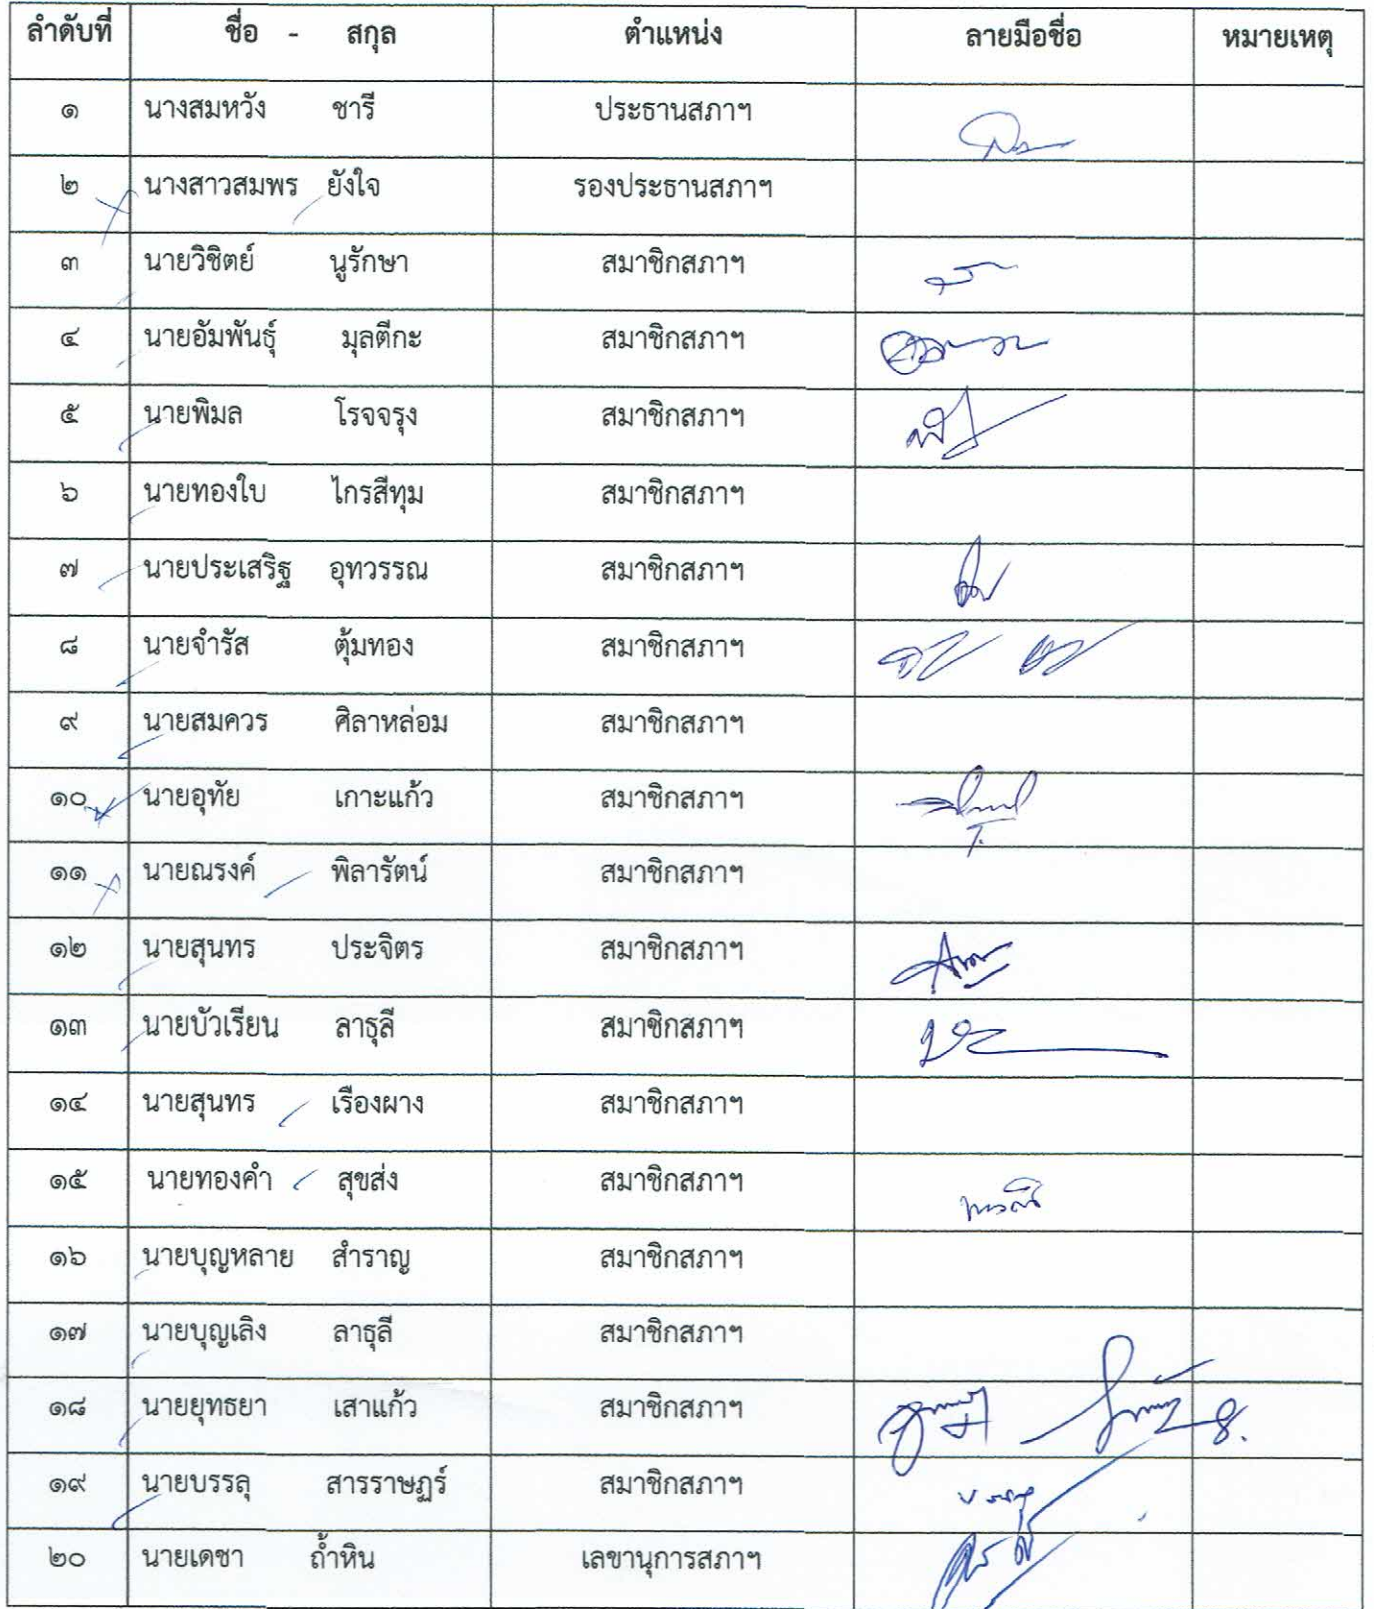 ลำดับที่ ชื่อ - สกุล ตำแหน่ง ลายมือชื่อ หมายเหตุ
๑ นางสมหวัง ชารี ประธานสภาฯ
๒ นางสาวสมพร ยังใจ รองประธานสภาฯ
๓ นายวิชิตย์ นูรักษา สมาชิกสภาฯ
๔ นายอัมพันธุ์ มุลตีกะ สมาชิกสภาฯ
๕ นายพิมล โรจจรุง สมาชิกสภาฯ
๖ นายทองใบ ไกรสีทุม สมาชิกสภาฯ
๗ นายประเสริฐ อุทวรรณ สมาชิกสภาฯ
๘ นายจำรัส ตุ้มทอง สมาชิกสภาฯ
๙ นายสมควร ศิลาหล่อม สมาชิกสภาฯ
๑๐ นายอุทัย เกาะแก้ว สมาชิกสภาฯ
๑๑ นายณรงค์ พิลารัตน์ สมาชิกสภาฯ
๑๒ นายสุนทร ประจิตร สมาชิกสภาฯ
๑๓ นายบัวเรียน ลาธุลี สมาชิกสภาฯ
๑๔ นายสุนทร เรืองผาง สมาชิกสภาฯ
๑๕ นายทองคำ สุขส่ง สมาชิกสภาฯ
๑๖ นายบุญหลาย สำราญ สมาชิกสภาฯ
๑๗ นายบุญเลิง ลาธุลี สมาชิกสภาฯ
๑๘ นายยุทธยา เสาแก้ว สมาชิกสภาฯ
๑๙ นายบรรลุ สารราษฏร์ สมาชิกสภาฯ
๒๐ นายเดชา ถ้ำหิน เลขานุการสภาฯ